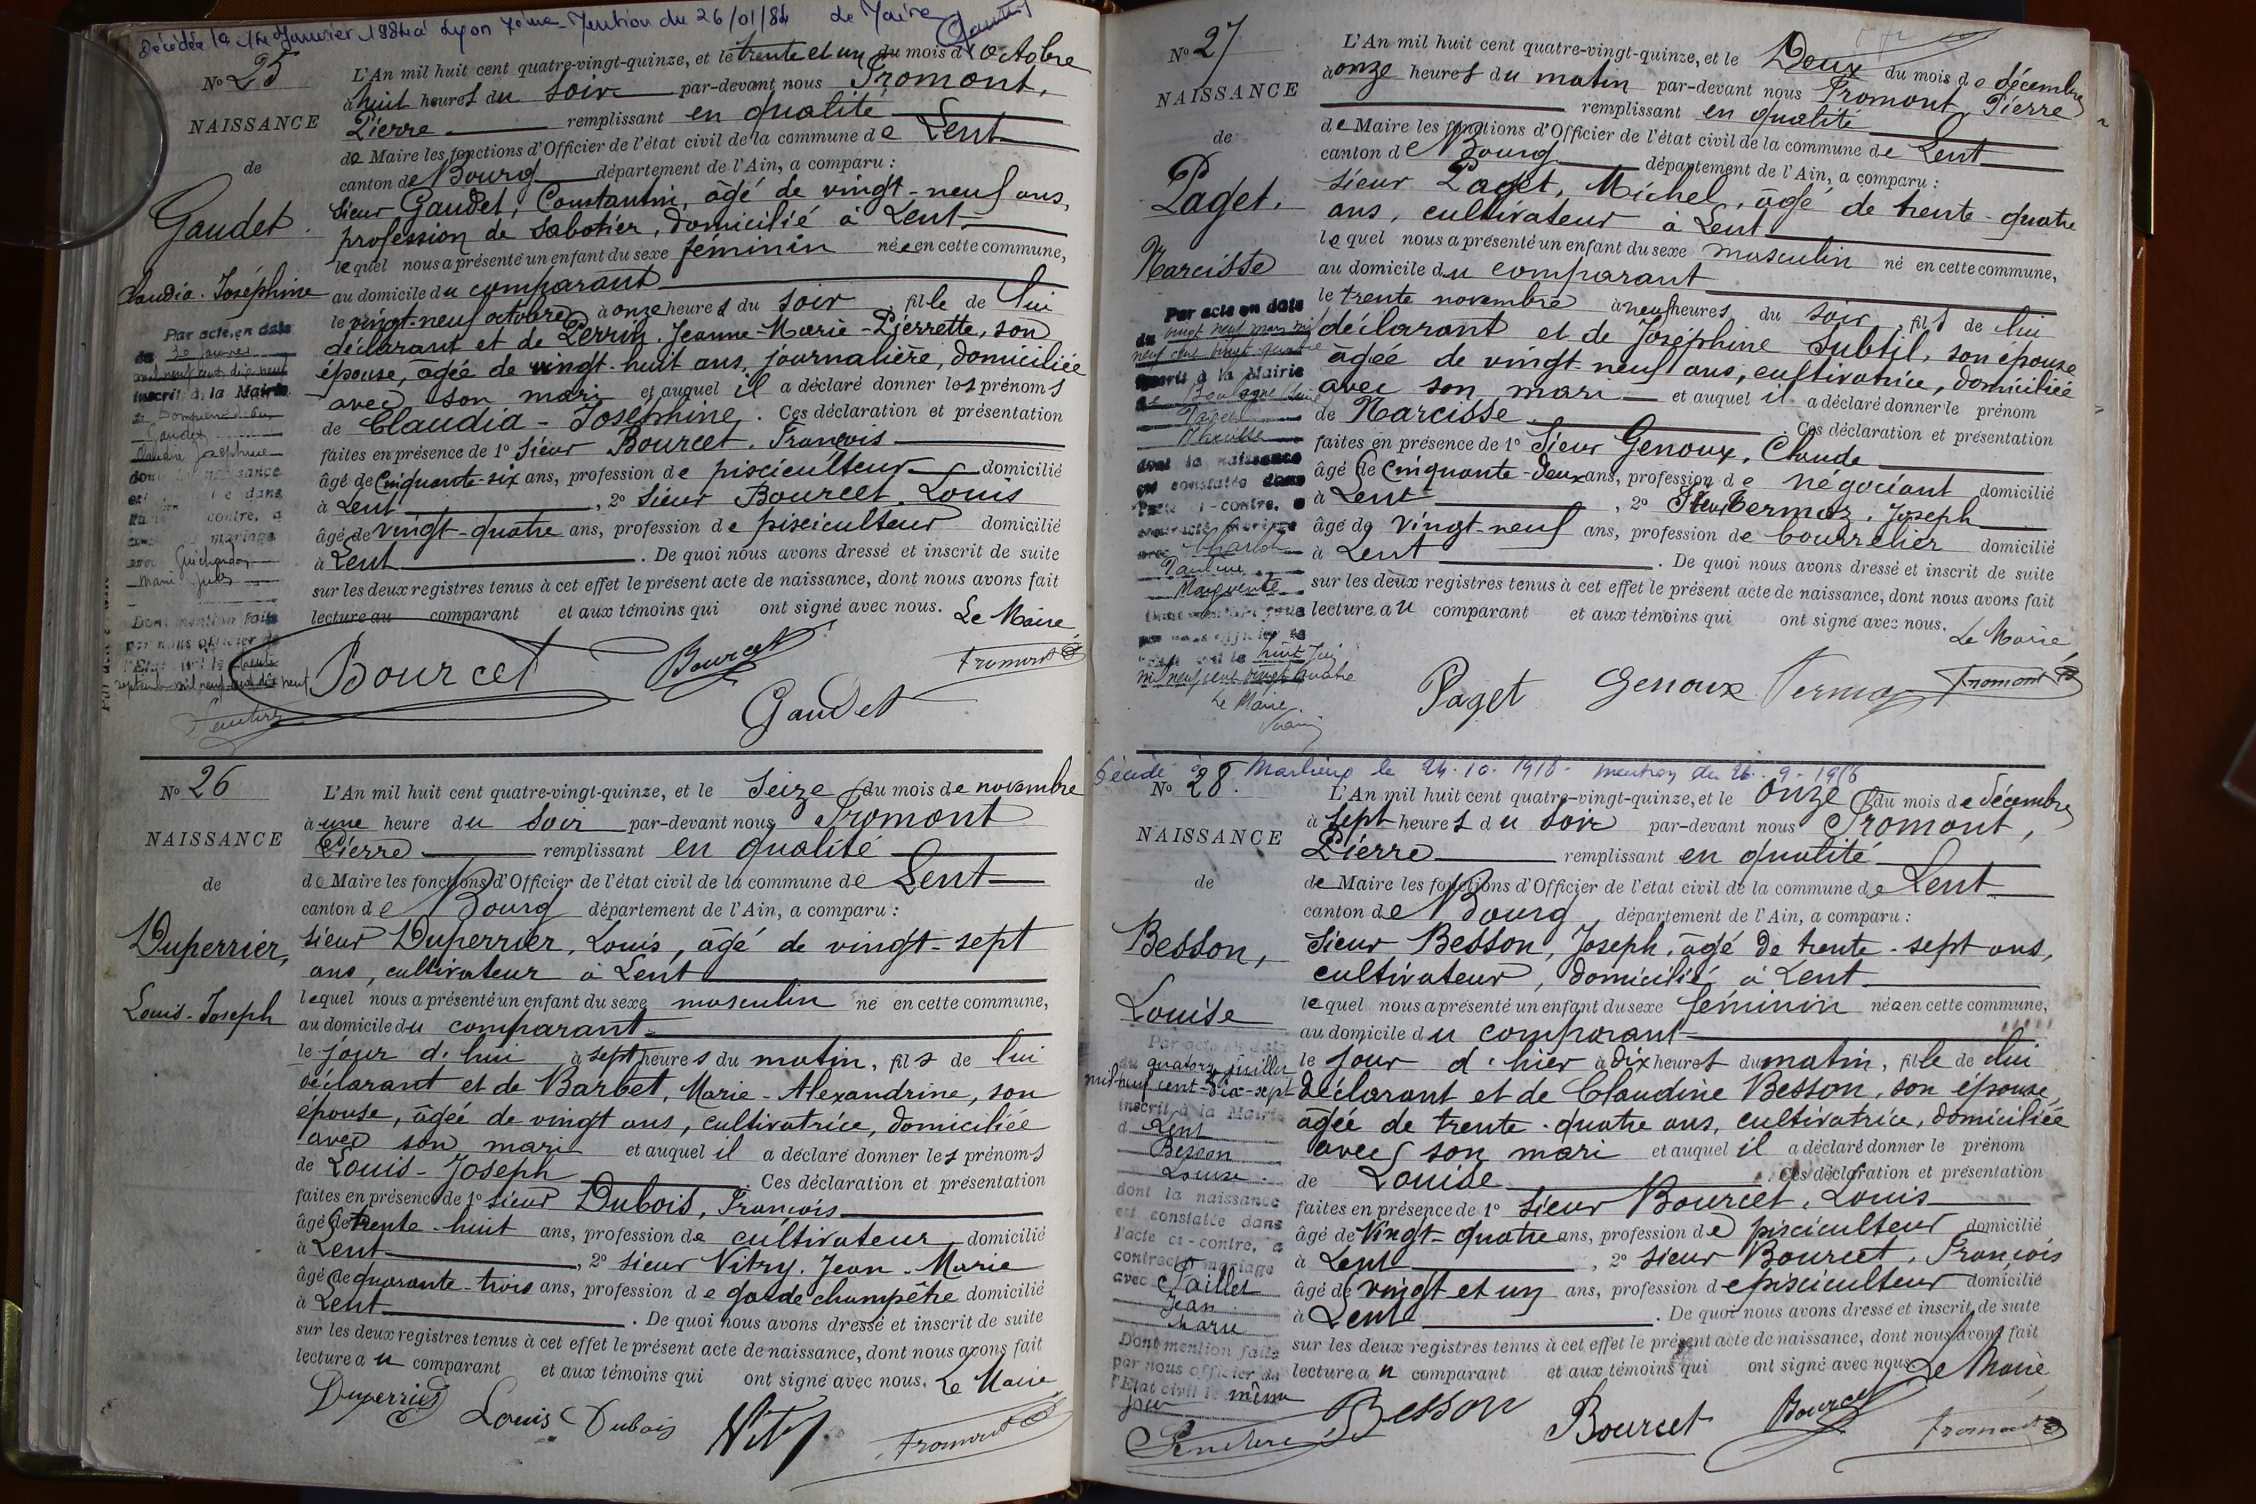 Décédée le 14 Janvier 1984 à Lyon 7ème. Mention du 26/01/84 Le Maire
No 25
NAISSANCE
de
Gaudet.
Claudia. Joséphine
Par acte en date
du 30 janvier
mil neuf cent dix neuf
inscrit à la Mairie
Gaudet
Claudia Joséphine
dont la naissance
est constatée dans
l'acte ci-contre, a
contracté mariage
avec Guichardon
Marie Jules
Dont mention faite
par nous officier de
septembre mil neuf cent dix neuf
L'An mil huit cent quatre-vingt-quinze, et le trente et un du mois d'octobre
à huit heures du soir par-devant nous Fromont,
Pierre remplissant en qualité
de Maire les fonctions d'Officier de l'état civil de la commune de Lent
canton de Bourg département de l'Ain, a comparu :
sieur Gaudet, Constantin, âgé de vingt-neuf ans,
profession de sabotier, domicilié à Lent
lequel nous a présenté un enfant du sexe féminin née en cette commune,
au domicile du comparant
le vingt-neuf octobre à onze heures du soir, fille de lui
déclarant et de Perrin, Jeanne-Marie-Pierrette, son
épouse, âgée de vingt-huit ans, journalière, domiciliée
avec son mari et auquel il a déclaré donner les prénoms
de Claudia-Joséphine. Ces déclaration et présentation
faites en présence de 1º sieur Bourcet, François
âgé de cinquante-six ans, profession de pisciculteur domicilié
à Lent, 2º sieur Bourcet, Louis
âgé de vingt-quatre ans, profession de pisciculteur domicilié
à Lent. De quoi nous avons dressé et inscrit de suite
sur les deux registres tenus à cet effet le présent acte de naissance, dont nous avons fait
lecture au comparant et aux témoins qui ont signé avec nous. Le Maire
Bourcet Bourcet Fromont
Gaudet
No 26
NAISSANCE
de
Duperrier,
Louis-Joseph
L'An mil huit cent quatre-vingt-quinze, et le seize du mois de novembre
à une heure du soir par-devant nous Fromont
Pierre remplissant en qualité
de Maire les fonctions d'Officier de l'état civil de la commune de Lent
canton de Bourg département de l'Ain, a comparu :
sieur Duperrier, Louis, âgé de vingt-sept
ans, cultivateur à Lent
lequel nous a présenté un enfant du sexe masculin né en cette commune,
au domicile du comparant
le jour d'hui à sept heures du matin, fils de lui
déclarant et de Barbet, Marie-Alexandrine, son
épouse, âgée de vingt ans, cultivatrice, domiciliée
avec son mari et auquel il a déclaré donner les prénoms
de Louis-Joseph. Ces déclaration et présentation
faites en présence de 1º sieur Dubois, François
âgé de trente-huit ans, profession de cultivateur domicilié
à Lent, 2º sieur Vitry, Jean-Marie
âgé de quarante-trois ans, profession de garde champêtre domicilié
à Lent. De quoi nous avons dressé et inscrit de suite
sur les deux registres tenus à cet effet le présent acte de naissance, dont nous avons fait
lecture au comparant et aux témoins qui ont signé avec nous. Le Maire
Duperrier Louis Dubois Vitry Fromont
No 27
NAISSANCE
de
Paget,
Narcisse
Par acte en date
du vingt neuf mars mil
neuf cent vingt quatre
inscrit à la Mairie
de Boulogne
Paget
Narcisse
dont la naissance
est constatée dans
l'acte ci-contre, a
contracté mariage
avec Charlot
Pauline
Marguerite
huit Juin
mil neuf cent vingt quatre
Le Maire
L'An mil huit cent quatre-vingt-quinze, et le Deux du mois de décembre
à onze heures du matin par-devant nous Fromont, Pierre
remplissant en qualité
de Maire les fonctions d'Officier de l'état civil de la commune de Lent
canton de Bourg département de l'Ain, a comparu :
sieur Paget, Michel, âgé de trente-quatre
ans, cultivateur à Lent
lequel nous a présenté un enfant du sexe masculin né en cette commune,
au domicile du comparant
le trente novembre à neuf heures du soir, fils de lui
déclarant et de Joséphine Subtil, son épouse
âgée de vingt-neuf ans, cultivatrice, domiciliée
avec son mari et auquel il a déclaré donner le prénom
de Narcisse. Ces déclaration et présentation
faites en présence de 1º sieur Genoux, Claude
âgé de cinquante-deux ans, profession de négociant domicilié
à Lent, 2º sieur Vermoz, Joseph
âgé de vingt-neuf ans, profession de bourrelier domicilié
à Lent. De quoi nous avons dressé et inscrit de suite
sur les deux registres tenus à cet effet le présent acte de naissance, dont nous avons fait
lecture au comparant et aux témoins qui ont signé avec nous. Le Maire
Paget Genoux Fromont
Décédé à Marlieux le 24.10.1918. mention du
No 28.
NAISSANCE
de
Besson,
Louise
Par acte en date
du quatorze juillet
mil neuf cent dix-sept
inscrit à la Mairie
d Lent
Besson
Louise.
dont la naissance
est constatée dans
l'acte ci-contre, a
contracté mariage
avec Paillet
Jean
Marie
Dont mention faite
par nous officier de
l'Etat civil le même
jour
L'An mil huit cent quatre-vingt-quinze, et le onze du mois de décembre
à sept heures du soir par-devant nous Fromont,
Pierre remplissant en qualité
de Maire les fonctions d'Officier de l'état civil de la commune de Lent
canton de Bourg, département de l'Ain, a comparu :
sieur Besson, Joseph, âgé de trente-sept ans,
cultivateur, domicilié à Lent
lequel nous a présenté un enfant du sexe féminin née en cette commune,
au domicile du comparant
le jour d'hier à dix heures du matin, fille de lui
déclarant et de Claudine Besson, son épouse,
âgée de trente-quatre ans, cultivatrice, domiciliée
avec son mari et auquel il a déclaré donner le prénom
de Louise. Ces déclaration et présentation
faites en présence de 1º sieur Bourcet, Louis
âgé de vingt-quatre ans, profession de pisciculteur domicilié
à Lent, 2º sieur Bourcet, François
âgé de vingt et un ans, profession de pisciculteur domicilié
à Lent. De quoi nous avons dressé et inscrit de suite
sur les deux registres tenus à cet effet le présent acte de naissance, dont nous avons fait
lecture au comparant et aux témoins qui ont signé avec nous. Le Maire
Besson Bourcet Bourcet Fromont